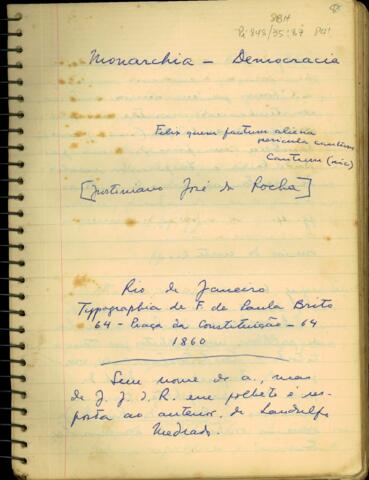 SBH
Pi 248/35:87 P41
Monarchia – Democracia
Felix quem faciunt aliena
pericula cautum
Cautum (sic)
[Justiniano José da Rocha]
Rio de Janeiro
Typographia de F. de Paula Brito
64 – Praça da Constituição – 64
1860
Sem nome de a., mas
de J. J. d. R. em folheto é res-
posta ao anterior, de Landulfo
Medrado.